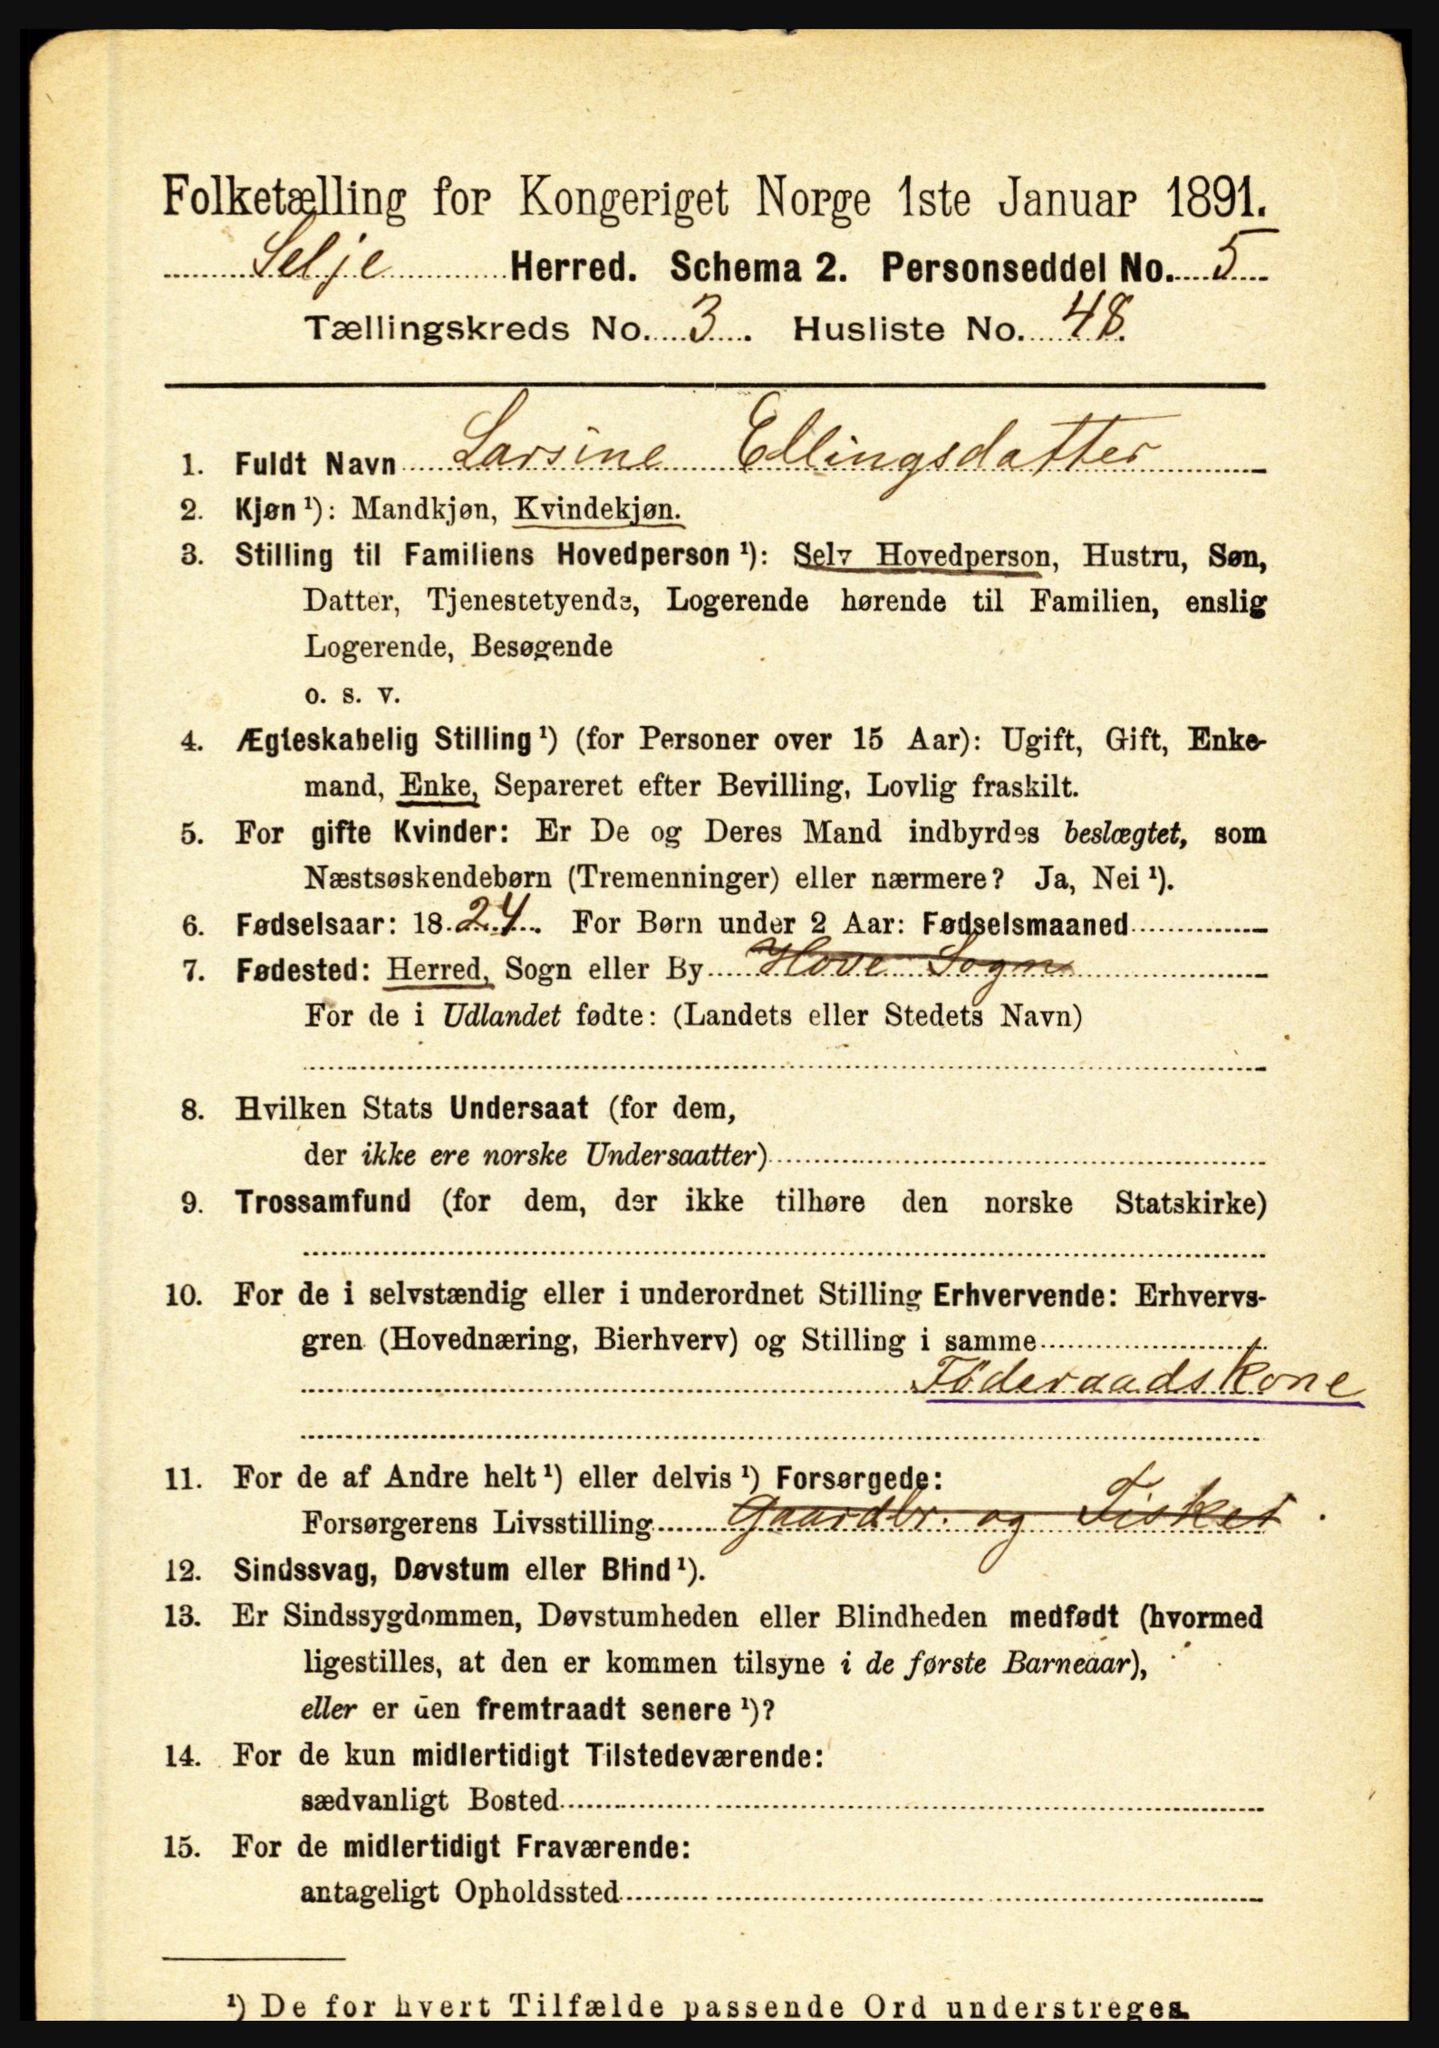 Folketælling for Kongeriget Norge 1ste Januar 1891.
Selje Herred. Schema 2. Personseddel No. 5
Tællingskreds No. 3. Husliste No. 48.
1. Fuldt Navn Larsine Ellingsdatter
2. Kjøn ¹): Mandkjøn, Kvindekjøn.
3. Stilling til Familiens Hovedperson ¹): Selv Hovedperson, Hustru, Søn,
Datter, Tjenestetyende, Logerende hørende til Familien, enslig
Logerende, Besøgende
o. s. v.
4. Ægteskabelig Stilling ¹) (for Personer over 15 Aar): Ugift, Gift, Enke-
mand, Enke, Separeret efter Bevilling, Lovlig fraskilt.
5. For gifte Kvinder: Er De og Deres Mand indbyrdes beslægtet, som
Næstsøskendebørn (Tremenninger) eller nærmere? Ja, Nei ¹).
6. Fødselsaar: 1824. For Børn under 2 Aar: Fødselsmaaned
7. Fødested: Herred, Sogn eller By Hove Sogn
For de i Udlandet fødte: (Landets eller Stedets Navn)
8. Hvilken Stats Undersaat (for dem,
der ikke ere norske Undersaatter)
9. Trossamfund (for dem, der ikke tilhøre den norske Statskirke)
10. For de i selvstændig eller i underordnet Stilling Erhvervende: Erhvervs-
gren (Hovednæring, Bierhverv) og Stilling i samme
Föderaadskone
11. For de af Andre helt ¹) eller delvis ¹) Forsørgede:
Forsørgerens Livsstilling Gaardbr. og Fisker.
12. Sindssvag, Døvstum eller Blind ¹).
13. Er Sindssygdommen, Døvstumheden eller Blindheden medfødt (hvormed
ligestilles, at den er kommen tilsyne i de første Barneaar),
eller er den fremtraadt senere ¹)?
14. For de kun midlertidigt Tilstedeværende:
sædvanligt Bosted
15. For de midlertidigt Fraværende:
antageligt Opholdssted
¹) De for hvert Tilfælde passende Ord understreges.